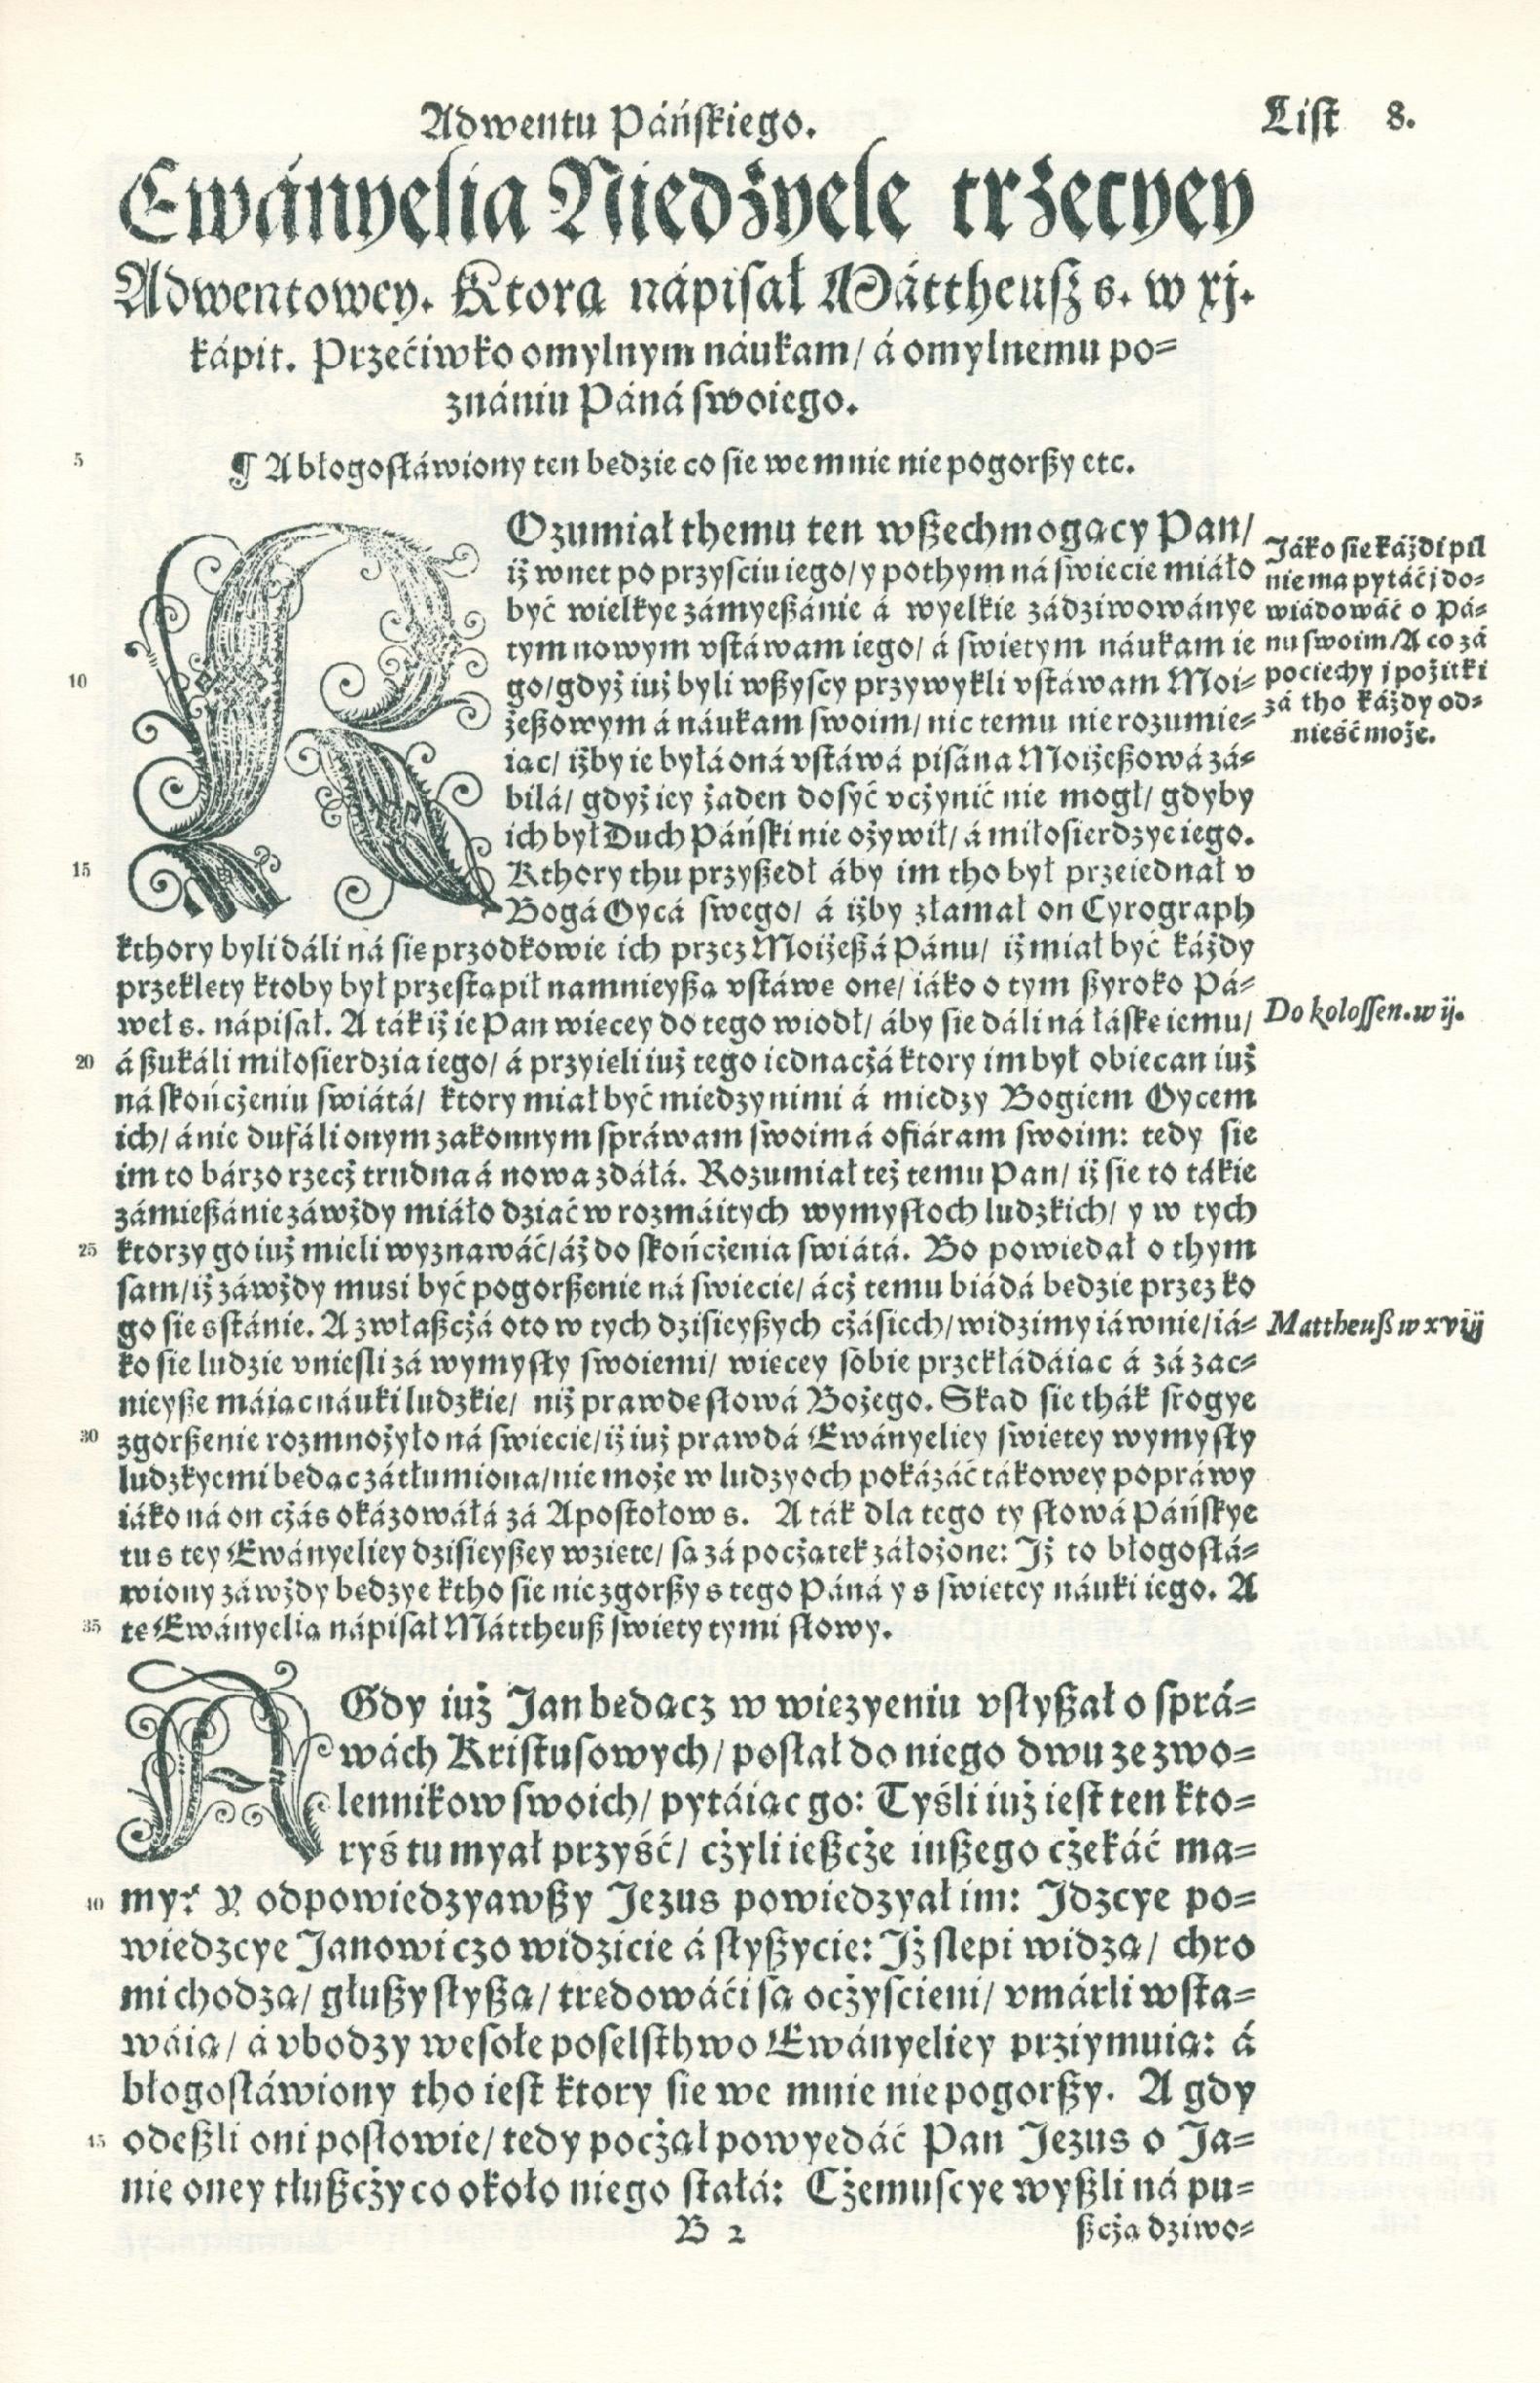 Adwentu Páńſkiego.
Liſt 8.
Ewányelia Niedźyele trżecyey
Adwentowey. Ktorą nápiſał Máttheuſz s. w xj.
kápit. Przećiwko omylnym náukam/ á omylnemu po⸗
znániu Páná ſwoiego.
5
¶ A błogoſłáwiony ten będzie co ſie we mnie nie pogorßy etc.
ROzumiał themu ten wßechmogący Pan/
iż wnet po przyſciu iego/ y pothym ná ſwiecie miáło
być wielkye zámyeßánie á wyelkie zádziwowánye
tym nowym vſtáwam iego/ á ſwiętym náukam ie
10
go/ gdyż iuż byli wßyſcy przywykli vſtáwam Moi⸗
żeßowym á náukam ſwoim/ nic temu nie rozumie⸗
iąc/ iżby ie byłá oná vſtáwá piſána Moiżeßowá zá⸗
biłá/ gdyż iey żaden doſyć vcżynić nie mogł/ gdyby
ich był Duch Páńſki nie ożywił/ á miłoſierdzye iego.
15
Kthory thu przyßedł áby im tho był przeiednał v
Bogá Oycá ſwego/ á iżby złamał on Cyrograph
kthory byli dáli ná ſię przodkowie ich przez Moiżeßá Pánu/ iż miał być káżdy
przeklęty ktoby był przeſtąpił namnieyßą vſtáwę onę/ iáko o tym ßyroko Pá⸗
weł s. nápiſał. A ták iż ie Pan więcey do tego wiodł/ áby ſie dáli ná łáſkę iemu/
20
á ßukáli miłoſierdzia iego/ á przyięli iuż tego iednácżá ktory im był obiecan iuż
ná ſkońcżeniu ſwiátá/ ktory miał być miedzy nimi á miedzy Bogiem Oycem
ich/ á nie dufáli onym zakonnym ſpráwam ſwoim á ofiáram ſwoim: tedy ſie
im to bárzo rzecż trudna á nowa zdáłá. Rozumiał też temu Pan/ iż ſie to tákie
zámießánie záwżdy miáło dziać w rozmáitych wymyſłoch ludzkich/ y w tych
25
ktorzy go iuż mieli wyznawáć/ áż do ſkońcżenia ſwiátá. Bo powiedał o thym
ſam/ iż záwżdy muſi być pogorßenie ná ſwiecie/ ácż temu biádá będzie przez ko
go ſie sſtánie. A zwłaßcżá oto w tych dziſieyßych cżáſiech/ widzimy iáwnie/ iá⸗
ko ſie ludzie vnieſli zá wymyſły ſwoiemi/ więcey ſobie przekłádáiąc á zá zac⸗
nieyße máiąc náuki ludzkie/ niż prawdę ſłowá Bożego. Skąd ſie thák ſrogye
30
zgorßenie rozmnożyło ná ſwiecie/ iż iuż prawdá Ewányeliey ſwiętey wymyſły
ludzkyemi będąc zátłumiona/ nie może w ludzyoch pokázáć tákowey popráwy
iáko ná on cżás okázowáłá zá Apoſtołow s. A ták dla tego ty ſłowá Páńſkye
tu s tey Ewányeliey dziſieyßey wzięte/ ſą zá pocżątek záłożone: Iż to błogoſłá⸗
wiony záwżdy będzye ktho ſie nie zgorßy s tego Páná y s ſwiętey náuki iego. A
35
tę Ewányelią nápiſał Máttheuß ſwięty tymi ſłowy.
Jáko ſie káżdi pil
nie ma pytáć j do⸗
wiádowáć o Pá⸗
nu ſwoim/ A co zá
pociechy j pożitki
zá tho káżdy od⸗
nieść może.
Do koloſſen. w ij.
Mattheuß w xviij
AGdy iuż Jan będącz w więzyeniu vſłyßał o ſprá⸗
wách Kriſtuſowych/ poſłał do niego dwu ze zwo⸗
lennikow ſwoich/ pytáiąc go: Tyśli iuż ieſt ten kto⸗
ryś tu myał przyść/ cżyli ießcże inßego cżekáć ma⸗
40
my? Y odpowiedzyawßy Jezus powiedzyał im: Jdzcye po⸗
wiedzcye Janowi czo widzicie á ſłyßycie: Jż ſlepi widzą/ chro
mi chodzą/ głußy ſłyßą/ trędowáći ſą ocżyſcieni/ vmárli wſta⸗
wáią/ á vbodzy weſołe poſelſthwo Ewányeliey przyimuią: á
błogoſłáwiony tho ieſt ktory ſie we mnie nie pogorßy. A gdy
45
odeßli oni poſłowie/ tedy pocżął powyedáć Pan Jezus o Ja⸗
nie oney tłußcży co około niego ſtałá: Cżemuſcye wyßli ná pu⸗
B 2
ßcżą dziwo⸗